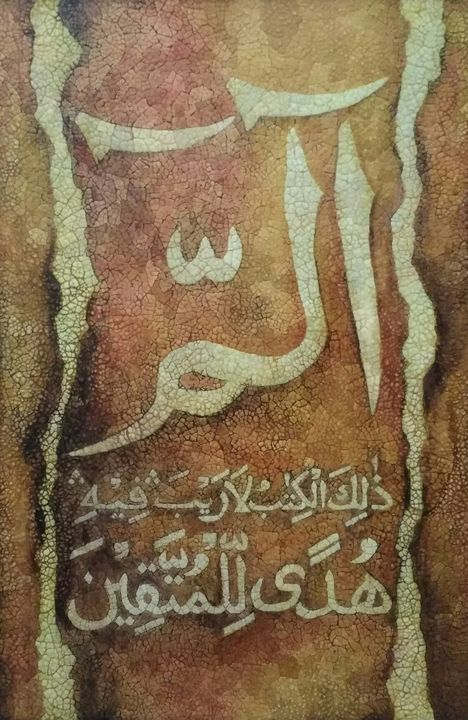 الٓمّٓ
ذٰلِكَ الْكِتٰبُ لَا رَيْبَ ۛ فِيْهِ ۛ
هُدًى لِّلْمُتَّقِيْنَ